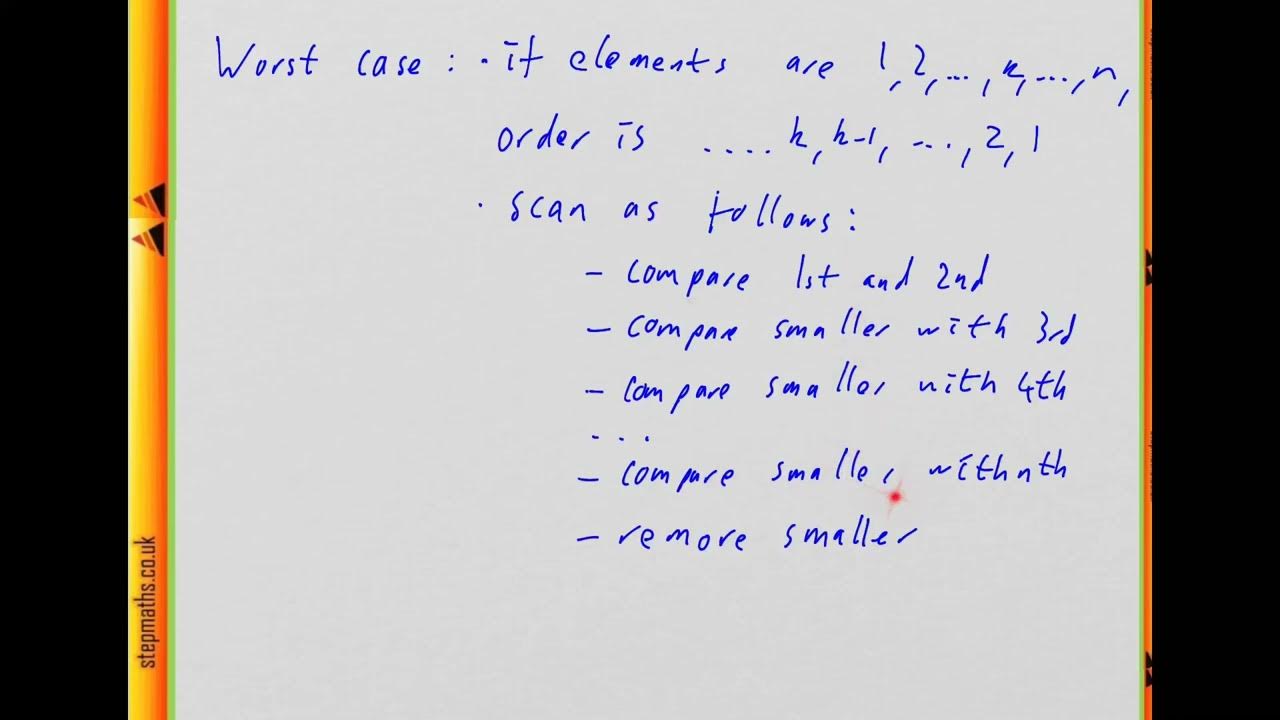 Worst case : · if elements are 1, 2, ..., k, ..., n,
order is .... k, k-1, ..., 2, 1
· scan as follows:
- compare 1st and 2nd
- compare smaller with 3rd
- compare smaller with 4th
...
- compare smaller with nth
- remove smaller
stepmaths.co.uk